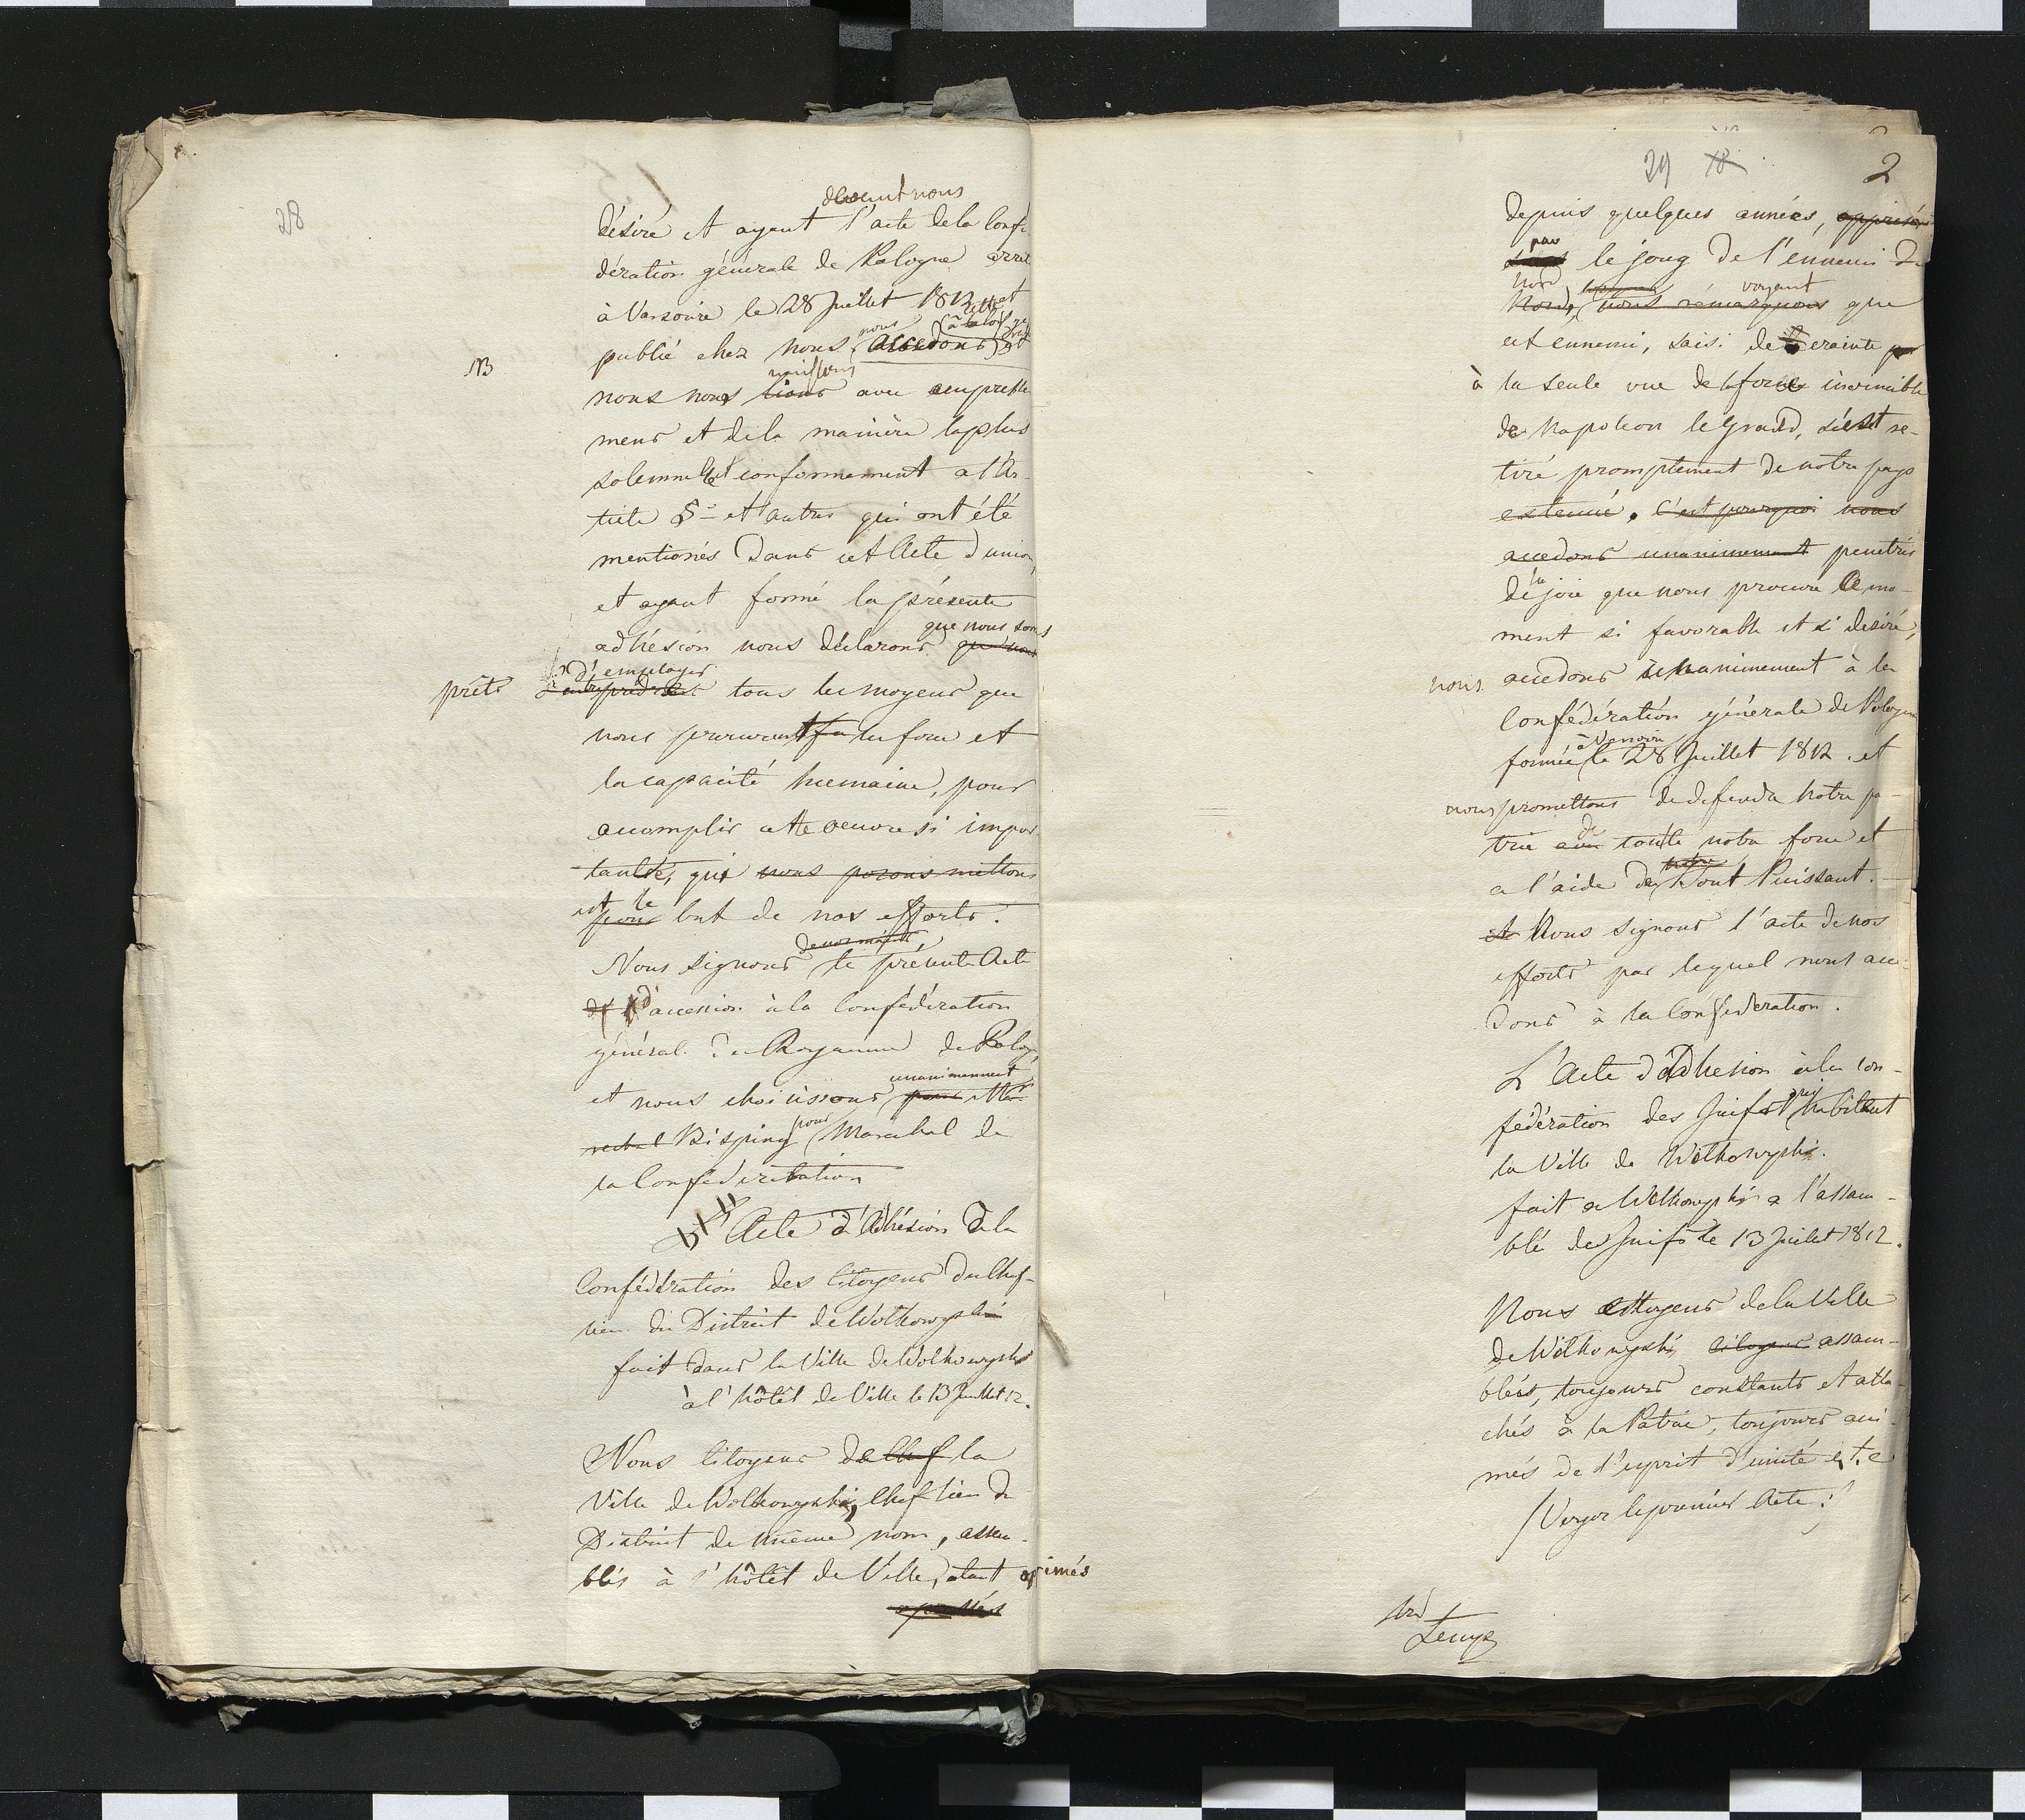 28
devant nous
désiré et ayant l'acte de la Confé
dération générale de Pologne arrêt
à Varsovie le 28 Juillet 1812 et
publié chez nous, nous accedons et
NB
nous nous unissons lions avec empresse
ment et de la manière la plus
solemnelle et conformement a l'Ar-
ticle 5 et autres qui ont été
mentionés dans cet Acte d'union,
et ayant formé la présente
adhésion nous déclarons que nous
que nous soms
prêts d'employer
tous les moyens que
nous procurent la force et
la capacité humaine, pour
accomplir cette oeuvre si impor
tante, qui nous posons mettons
est le pour but de nos efforts.
Nous signons le présente Acte
d'accession à la Confédération
général du Royaume de Polog
unanimement
et nous choisissons pour Ma
rechal Bisping pour Marechal de
la Confédération
Acte d'Adhésion à la
Confédération des Citoyens du Chef-
lieu du District de Wolkowyski
fait dans la Ville de Wolkowyski
à l'hôtel de Ville le 13 Juillet 12.
Nous Citoyens de Chef la
Ville de Wolkowyski, Chef lieu de
District de même nom, assem-
blés à l'hôtel de Ville, étant oprimés
29 18
2
depuis quelques années,
par le joug de l'ennemi du
Nord voyant
Nord, nous rémarquons que
cet ennemi, saisi de crainte
à la seule vue de la force invincible
de Napoleon le Grand, s'est re-
tiré promptement de notre pays
extenué. C'est pourquoi nous
accedons unanimement penetrés
de la joie que nous procure le mo-
ment si favorable et si desiré,
nous accedons unanimement à la
Confédération générale de Pologne
formée à Varsovie le 28 Juillet 1812. et
nous promettons de defendre notre pa-
trie de toute notre force et
a l'aide de Tout Puissant.
et Nous signons l'acte de nos
efforts par lequel nous acce-
dons à la Confideration.
L'Acte d'Adhesion à la Con-
fédération des Juifs qui habitent
la Ville de Wolkowyski.
fait a Wolkowyski a l'assem-
blé des Juifs le 13 Juilet 1812.
Nous Citoyens de la Ville
de Wolkowyski, Citoyens assem-
blés, toujours constants et atta-
chés à la Patrie, toujours ani-
més de l'esprit d'unité et. c
/Voyez le premier Acte:/